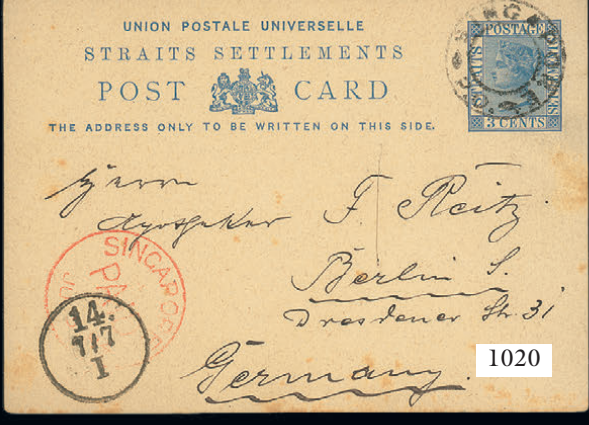 UNION POSTALE UNIVERSELLE
STRAITS SETTLEMENTS
POST CARD
THE ADDRESS ONLY TO BE WRITTEN ON THIS SIDE.
POSTAGE
3 CENTS
Herrn
Apotheker F. Reitz
Berlin S.
Dresdener Str. 31
Germany.
SINGAPORE
PAID
14.
7/7
I
1020